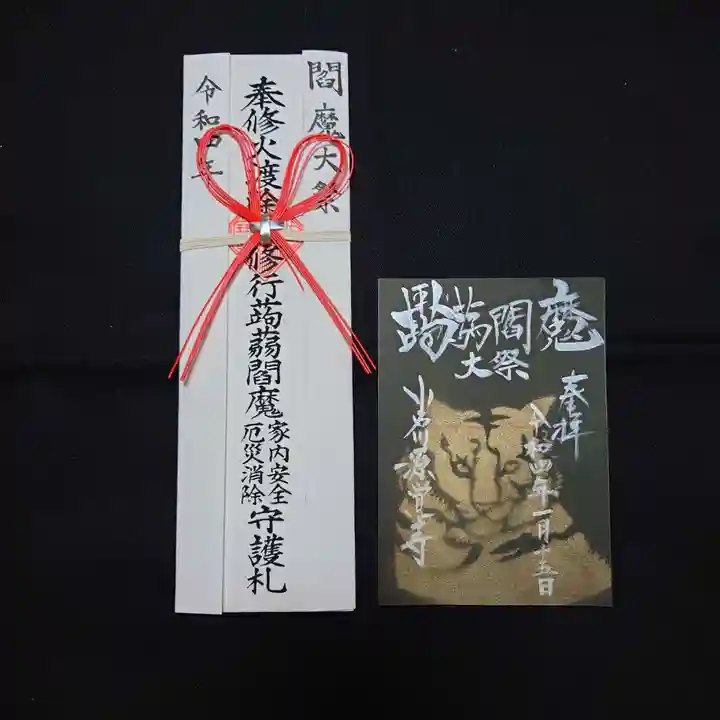 閻魔大祭
奉修火渡
修行蒟蒻閻魔
家内安全
厄災消除
守護札
令和四年
蒟蒻閻魔
大祭
奉拝
令和四年一月十五日
小石川源覚寺